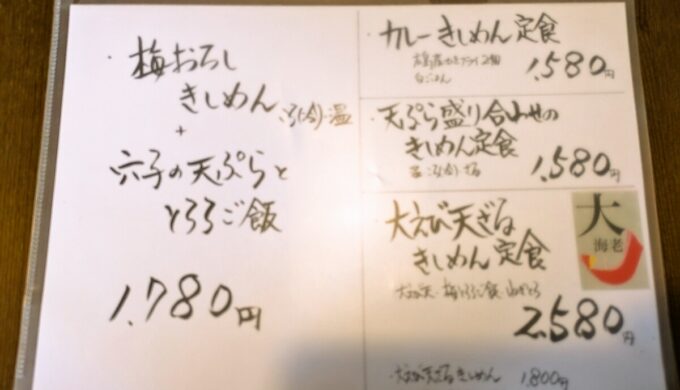 ・梅おろし
きしめん 冷・温
+
穴子の天ぷらと
とろろご飯
1,780円
・カレーきしめん定食
白ごはん
1,580円
・天ぷら盛り合わせの
きしめん定食
1,580円
・大えび天ざる
きしめん定食
大海老
2,580円
・大えび天ざるきしめん 1,800円